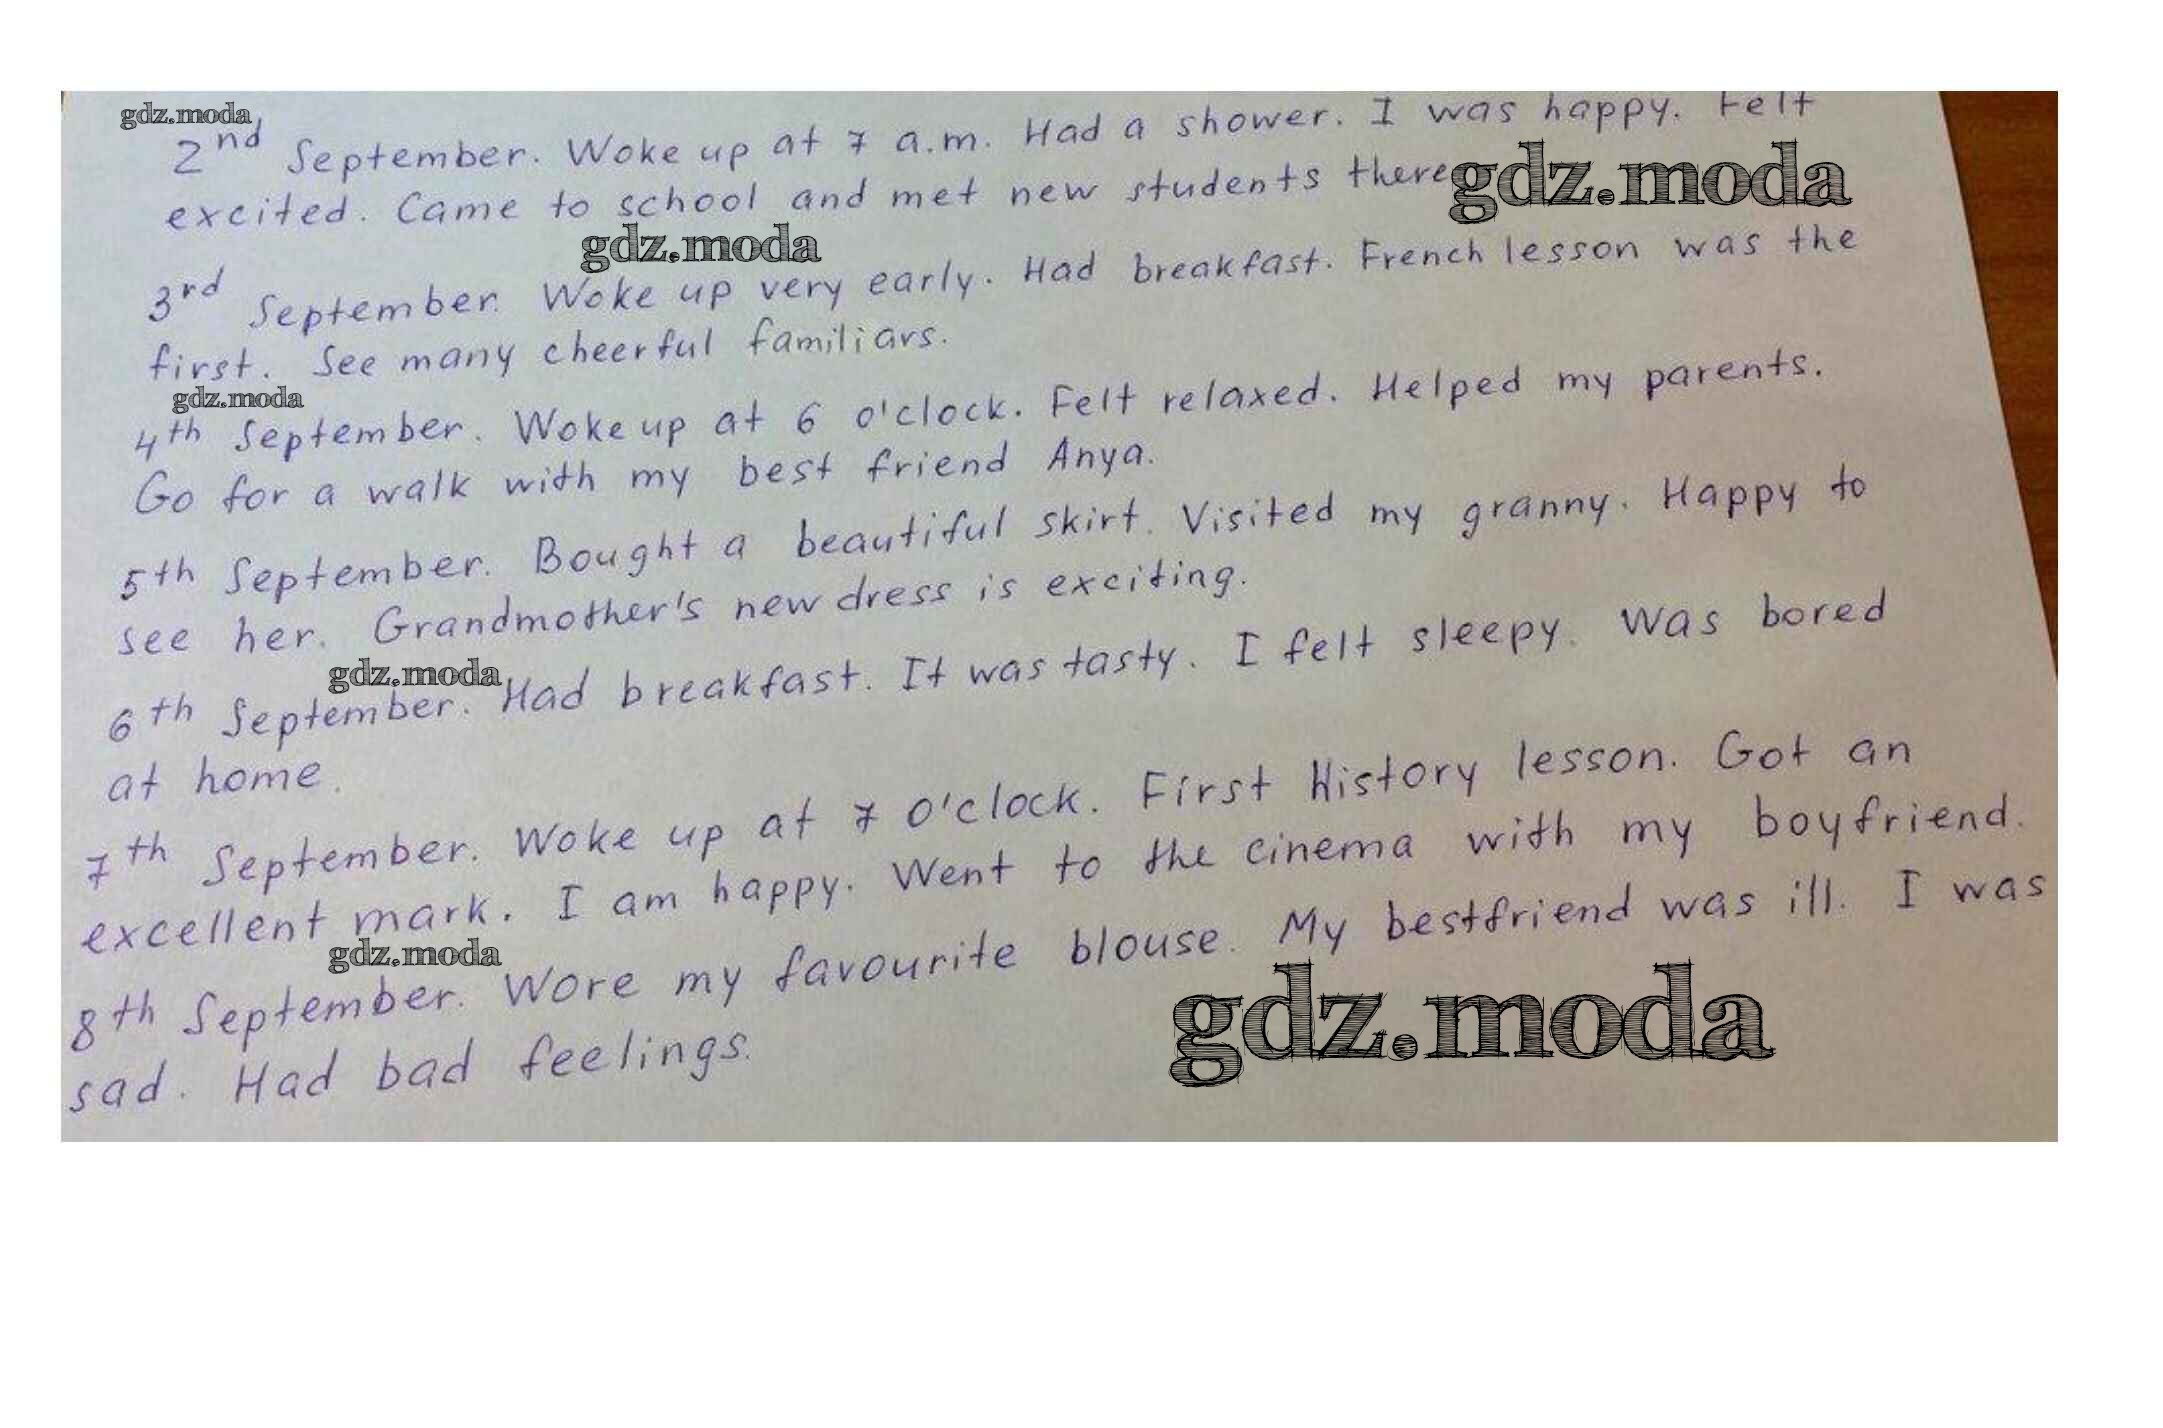 gdz.moda
2nd September. Woke up at 7 a.m. Had a shower. I was happy. Felt
excited. Came to school and met new students there
gdz.moda
gdz.moda
3rd September. Woke up very early. Had breakfast. French lesson was the
first. See many cheerful familiars.
gdz.moda
4th September. Woke up at 6 o'clock. Felt relaxed. Helped my parents.
Go for a walk with my best friend Anya.
5th September. Bought a beautiful skirt. Visited my granny. Happy to
see her. Grandmother's new dress is exciting.
gdz.moda
6th September. Had breakfast. It was tasty. I felt sleepy. Was bored
at home.
7th September. Woke up at 7 o'clock. First History lesson. Got an
excellent mark. I am happy. Went to the cinema with my boyfriend.
gdz.moda
8th September. Wore my favourite blouse. My bestfriend was ill. I was
sad. Had bad feelings.
gdz.moda